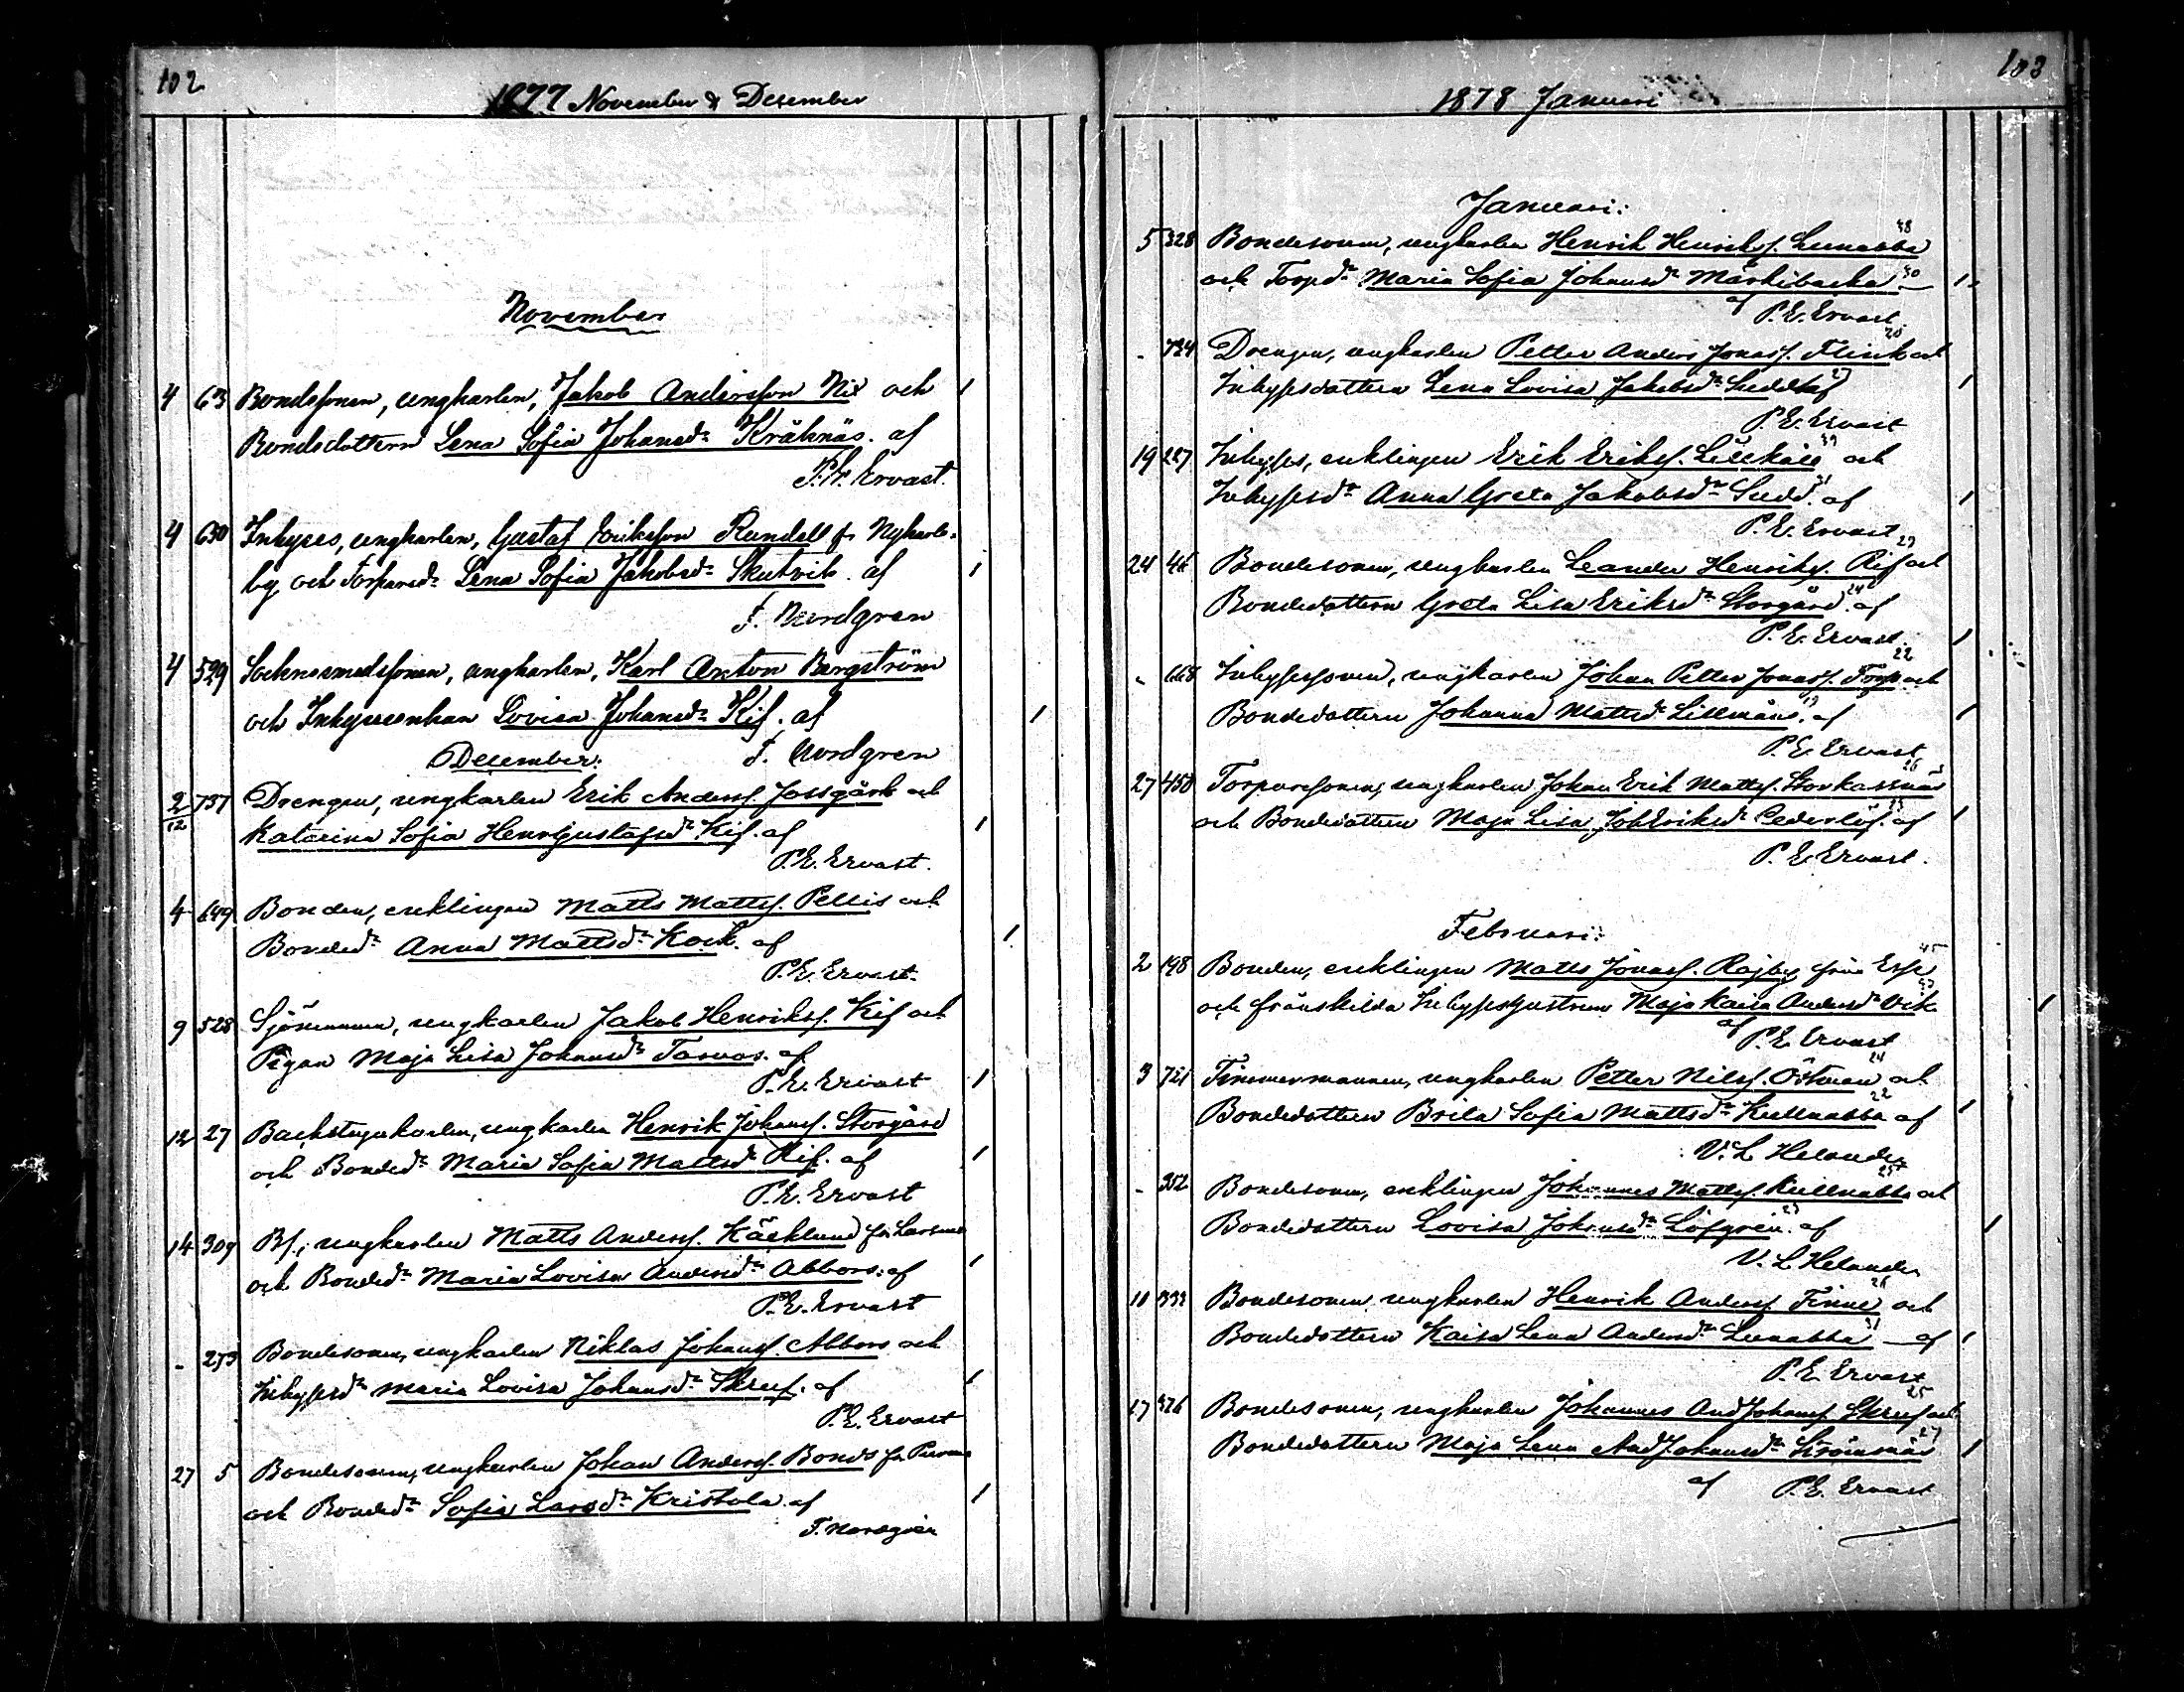 102
1877 November & Desember
November
4 63 Bondesonen, ungkarlen, Jakob Andersson Nix och 1
Bondedottern Lena Sofia Johansdr Kräknäs. af
P. W. Ervast.
4 630 Inhyses, ungkarlen, Gustaf Eriksson Rundell fr Nykarle-
by och Torparedr Lena Sofia Jakobsdr Skutvik. af 1
F. Nordgren
4 529 Socknesmedssonen, ungkarlen, Karl Anton Bergström
och Inhysesenkan Lovisa Johansdr Kif. af 1
December: F. Nordgren
2/12 737 Drengen, ungkarlen Erik Anderss. Jossgärk och
Katarina Sofia HenrGustafsdr Kif. af 1
P. E. Ervast.
4 649 Bonden, enklingen Matts Mattss. Pellis och
Bondedr Anna Mattsdr Kock. af 1
P. E. Ervast.
9 528 Sjömannen, ungkarlen Jakob Henrikss. Kif och
Pigan Maja Lisa Johansdr Tarvos. af
P. E. Ervast 1
12 27 Backstugukarlen, ungkarlen Henrik Johanss. Storgård
och Bondedr Maria Sofia Mattsdr Rif. af 1
P. E. Ervast
14 309 Bs., ungkarlen Matts Anderss. Käcklund fr Larsmo
och Bondedr Maria Lovisa Andersdr Abbors. af 1
P. E. Ervast
- 273 Bondesonen, ungkarlen Niklas Johanss. Abbors och
Inhysesdr Maria Lovisa Johansdr Skruf. af 1
P. E. Ervast
27 5 Bondesonen, ungkarlen Johan Anderss. Bonds fr
och Bondedr Sofia Larsdr Kristola. af 1
F. Nordgren
103
1878 Januari
Januari:
5 328 Bondesonen, ungkarlen Henrik Henrikss. Lunabba 48
och Torpdr Maria Sofia Johansdr Märkibacka 30 1
af P. E. Ervast
- 734 Drengen, ungkarlen Petter Anders Jonass. Flink och 20
Inhysesdottern Lena Lovisa Jakobsdr Sudd af 1
P. E. Ervast
19 227 Inhyses, enklingen Erik Erikss. Lillkåll och 39
Inhysesdr Anna Greta Jakobsdr Sudd. af 1
P. E. Ervast
24 46 Bondesonen, ungkarlen Leander Henrikss. Rif och 23
Bondedottern Greta Lisa Eriksdr Storgård. af 24
P. E. Ervast. 1
- 668 Inhysessonen, ungkarlen Johan Petter Jonass. Torp och 22
Bondedottern Johanna Mattsdr Lillmåns. af 1
P. E. Ervast
27 450 Torparesonen, ungkarlen Johan Erik Mattss. Storkassnäs 26
och Bondedottern Maja Lisa JohEriksdr Cederlöf. af 1
P. E. Ervast.
Februari:
2 198 Bonden, enklingen Matts Jonass. Rajby från Esse 45
och frånskilda Inhyseshustrun Maja Kaisa Andersdr Vik 1
af P. E. Ervast
3 721 Timmermannen, ungkarlen Petter Nilss. Östman och 24
Bondedottern Brita Sofia Mattsdr Kullnabba af 22 1
V. L Helander
- 352 Bondesonen, enklingen Johannes Mattss. Kullnabba och 25
Bondedottern Lovisa Johansdr Löfgren. af 23 1
V. L Helander
10 333 Bondesonen, ungkarlen Henrik Anderss. Finne och 26
Bondedottern Kaisa Lena Andersdr Lunabba af 1
P. E. Ervast
17 Bondesonen, ungkarlen Johannes AndJohanss. Skruf och 25
Bondedottern Maja Lena AndJohansdr Strömsnäs 27 1
af P. E. Ervast